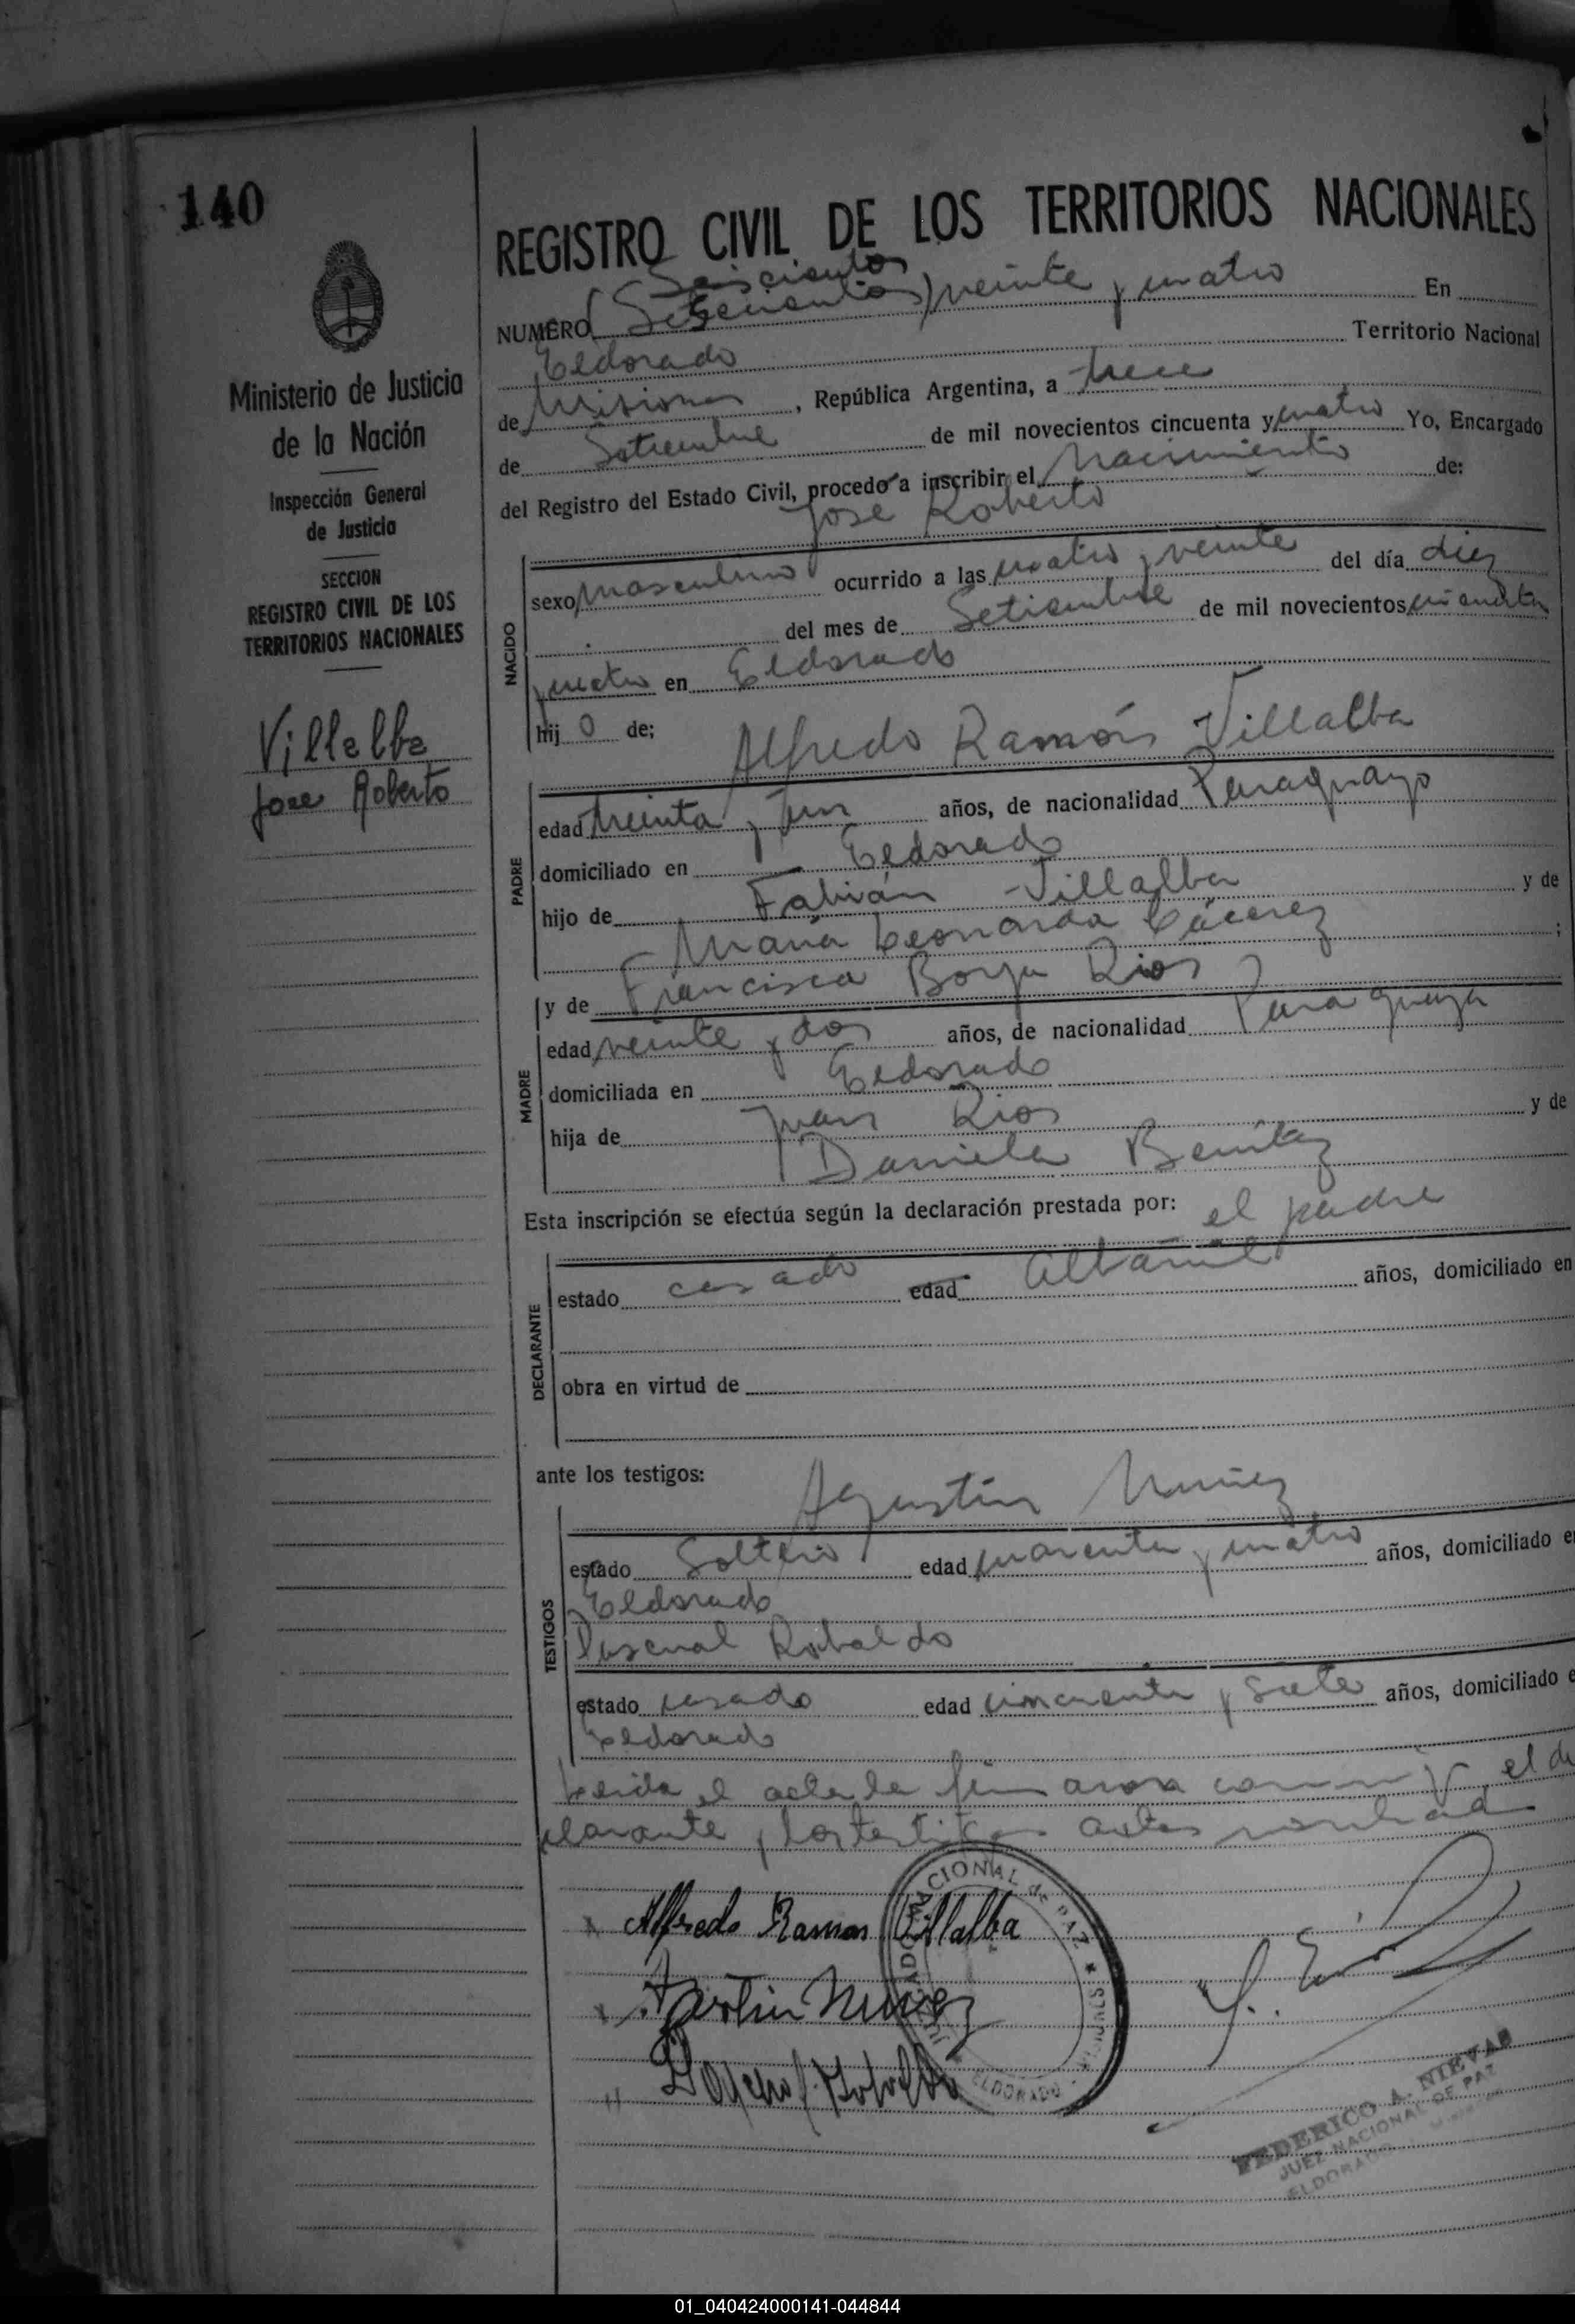 140
Ministerio de Justicia
de la Nación
Inspección General
de Justicia
SECCION
REGISTRO CIVIL DE LOS
TERRITORIOS NACIONALES
Villalba
Jose Roberto
REGISTRO CIVIL DE LOS TERRITORIOS NACIONALES
Seiscientos
NUMERO (Setecientos) veinte y cuatro En
Eldorado Territorio Nacional
de Misiones, República Argentina, a trece
de Setiembre de mil novecientos cincuenta y cuatro Yo, Encargado
del Registro del Estado Civil, procedo a inscribir el Nacimiento de:
Jose Roberto
NACIDO
sexo masculino ocurrido a las cuatro y veinte del día diez
del mes de Setiembre de mil novecientos cincuenta
y cuatro en Eldorado
hij o de; Alfredo Ramón Villalba
PADRE
edad treinta y un años, de nacionalidad Paraguayo
domiciliado en Eldorado
hijo de Fabián Villalba y de
María Leonarda Cácerez ;
y de Francisca Borja Rios
MADRE
edad veinte y dos años, de nacionalidad Paraguaya
domiciliada en Eldorado
hija de Juan Rios y de
Daniela Benítez
Esta inscripción se efectúa según la declaración prestada por: el padre
DECLARANTE
estado casado edad albañil años, domiciliado en
obra en virtud de
ante los testigos: Agustín Nuñez
TESTIGOS
estado Soltero edad cuarenta y cuatro años, domiciliado e
Eldorado
Pascual Robaldo
estado casado edad cincuenta y siete años, domiciliado e
Eldorado
Leida el acta la firmaron conmigo, el de
clarante y los testigos antes
Alfredo Ramon Villalba
Nuñez
JUZGADO NACIONAL de PAZ * ELDORADO
FEDERICO A. NIEVAS
JUEZ NACIONAL DE PAZ
ELDORADO
01_040424000141-044844